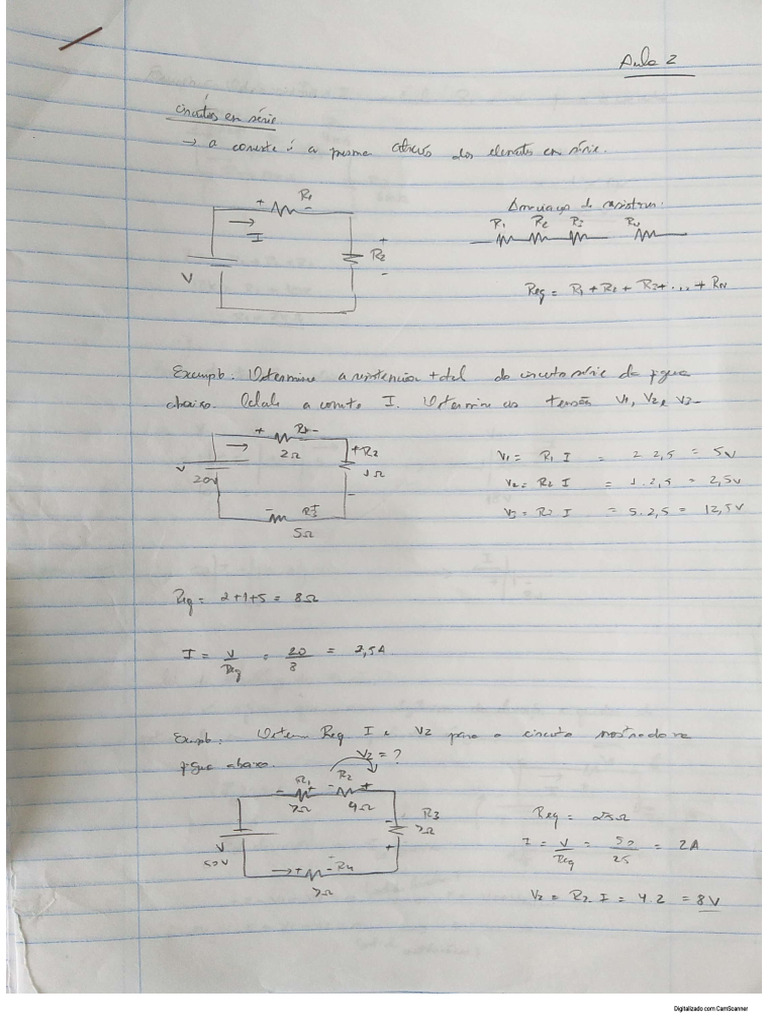 Aula 2
Circuitos em série
→ a corrente é a mesma através dos elementos em série.
+ R1 -
I
V
+
R2
-
Associação de resistores:
R1 R2 R3 RN
Req = R1 + R2 + R3 + ... + RN
Exemplo: Determine a resistencia total do circuito série da figura
abaixo. Calcule a corrente I. Determine as tensões V1, V2 e V3-
+ R1 -
2Ω
V
20V
+ R2
1Ω
-
- R3
5Ω
V1 = R1 I = 2 . 2,5 = 5V
V2 = R2 I = 1 . 2,5 = 2,5V
V3 = R3 I = 5 . 2,5 = 12,5V
Req = 2+1+5 = 8Ω
I = V/Req = 20/8 = 2,5A
Exemplo: Determ Req I e V2 para o circuito mostrado na
figura abaixo.
V2 = ?
- R1 + - R2 +
7Ω 4Ω
V
50V
- R3
7Ω
+
→ + - R4
7Ω
Req = 25Ω
I = V/Req = 50/25 = 2A
V2 = R2 . I = 4.2 = 8V
Digitalizado com CamScanner